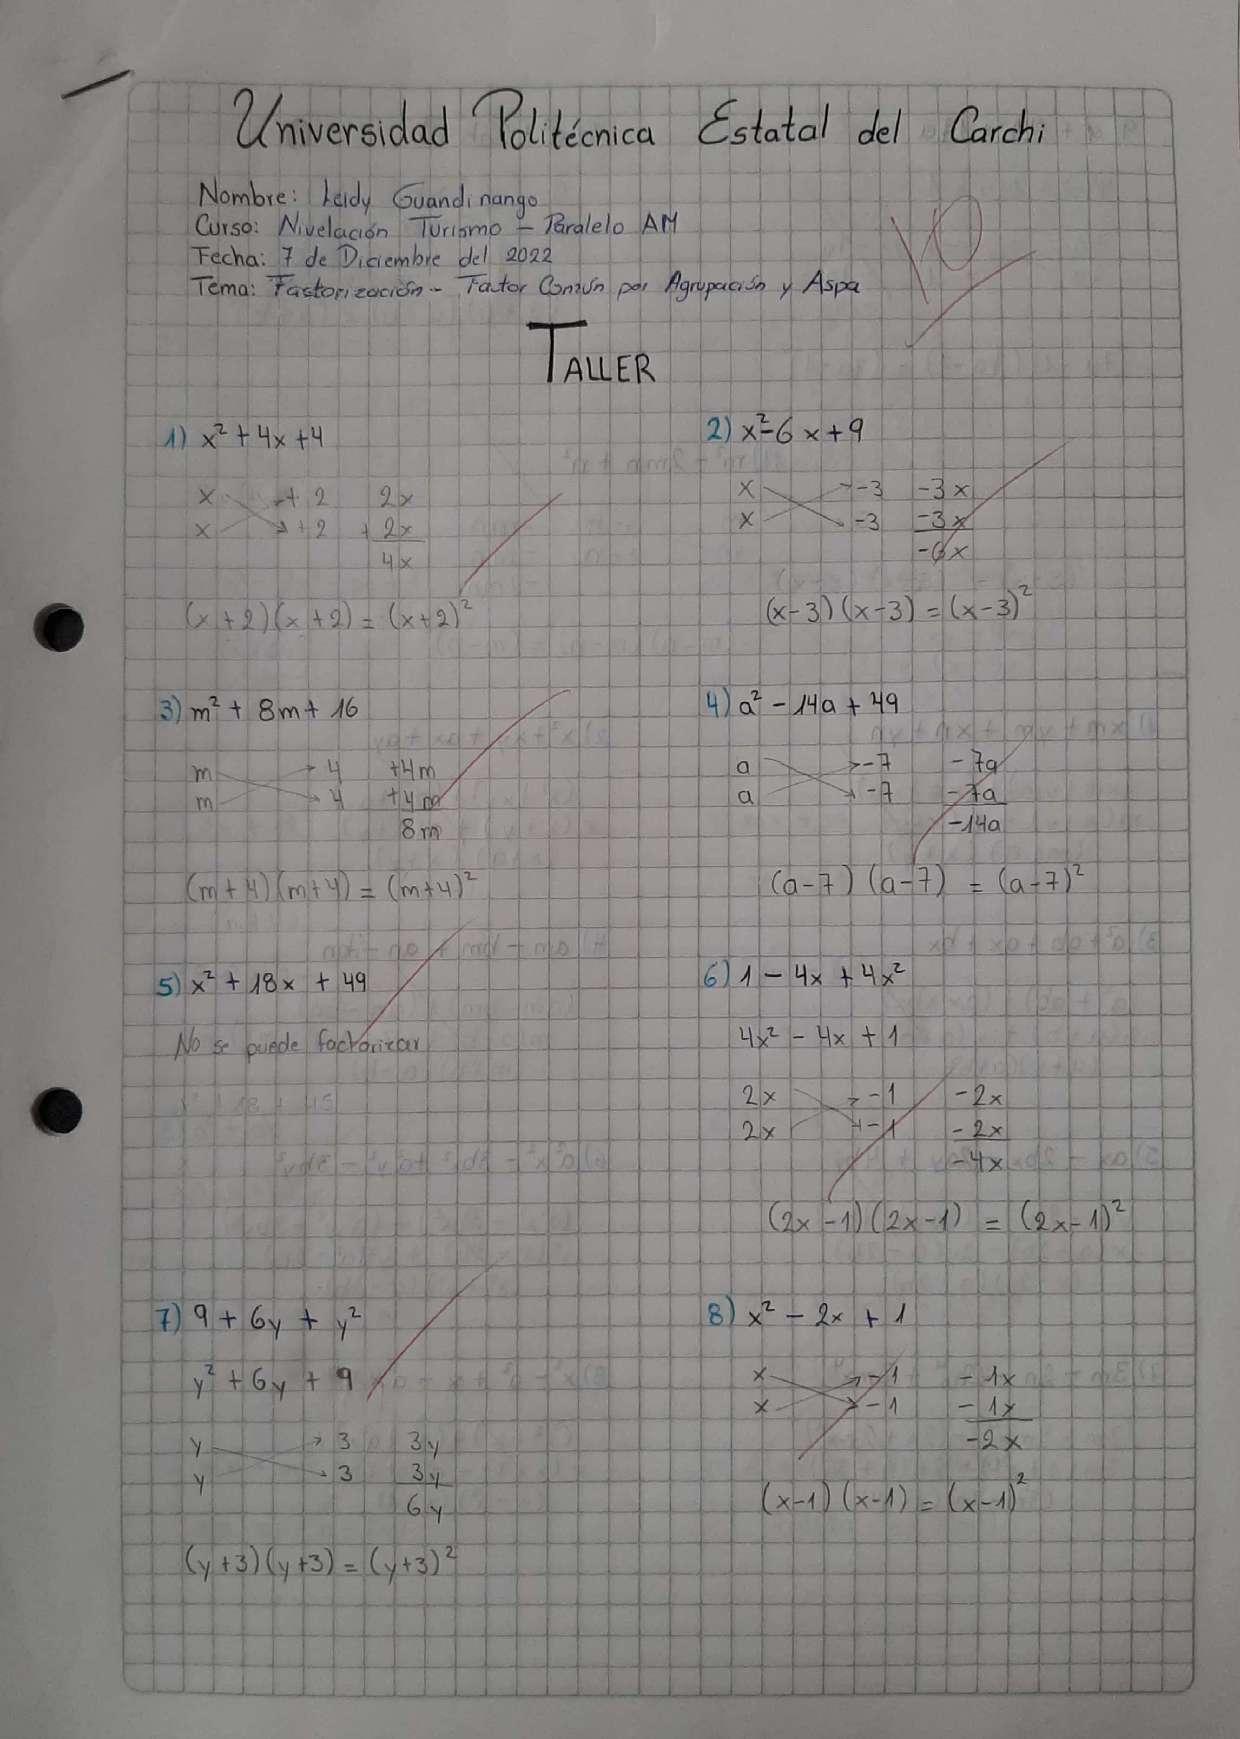 Universidad Politécnica Estatal del Carchi
Nombre: Leidy Guandinango
Curso: Nivelación Turismo - Paralelo AM
Fecha: 7 de Diciembre del 2022
Tema: Factorización - Factor Común por Agrupación y Aspa
10
TALLER
1) x² + 4x + 4
x + 2 2x
x + 2 + 2x
4x
(x + 2) (x + 2) = (x+2)²
2) x² - 6x + 9
x -3 -3x
x -3 -3x
-6x
(x-3) (x-3) = (x-3)²
3) m² + 8m + 16
m 4 +4m
m 4 +4m
8m
(m+4) (m+4) = (m+4)²
4) a² - 14a + 49
a -7 -7a
a -7 -7a
-14a
(a-7) (a-7) = (a-7)²
5) x² + 18x + 49
No se puede factorizar
6) 1 - 4x + 4x²
4x² - 4x + 1
2x -1 -2x
2x -1 -2x
-4x
(2x-1) (2x-1) = (2x-1)²
7) 9 + 6y + y²
y² + 6y + 9
y 3 3y
y 3 3y
6y
(y+3) (y+3) = (y+3)²
8) x² - 2x + 1
x -1 -1x
x -1 -1x
-2x
(x-1) (x-1) = (x-1)²